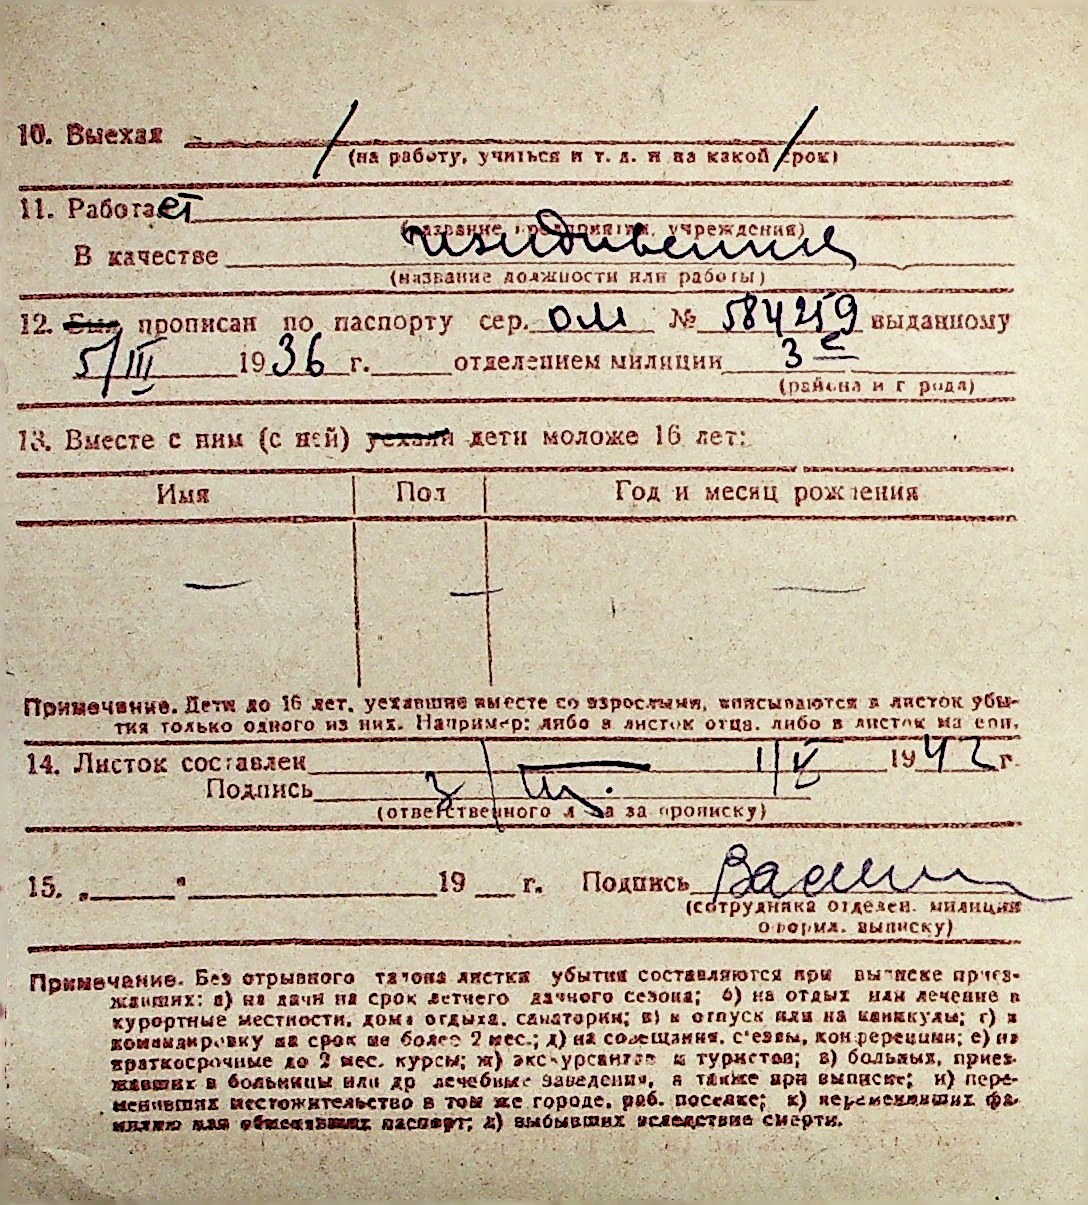 10. Выехал
(на работу, учиться и т. д. и на какой срок)
11. Работает
(название предприятия, учреждения)
В качестве иждивения
(название должности или работы)
12. Был прописан по паспорту сер. ОМ № 584259 выданному
5/III 1936 г. отделением милиции 3е
(района и города)
13. Вместе с ним (с ней) уехали дети моложе 16 лет:
Имя Пол Год и месяц рождения
— — —
Примечание. Дети до 16 лет, уехавшие вместе со взрослыми, вписываются в листок убы-
тия только одного из них. Например: либо в листок отца, либо в листок матери.
14. Листок составлен 1/V 1942 г.
Подпись
(ответственного лица за прописку)
15. „ " 19 г. Подпись
(сотрудника отделен. милиции
оформл. выписку)
Примечание. Без отрывного талона листки убытия составляются при выписке приез-
жавших: а) на дачи на срок летнего дачного сезона; б) на отдых или лечение в
курортные местности, дома отдыха, санатории; в) в отпуск или на каникулы; г) в
командировку на срок не более 2 мес.; д) на совещания, с'езды, конференции; е) на
краткосрочные до 2 мес. курсы; ж) экскурсантов и туристов; з) больных, приез-
жавших в больницы или др лечебные заведения, а также при выписке; и) пере-
менивших местожительство в том же городе, раб. поселке; к) переменивших фа-
милию или обменявших паспорт; л) выбывших вследствие смерти.